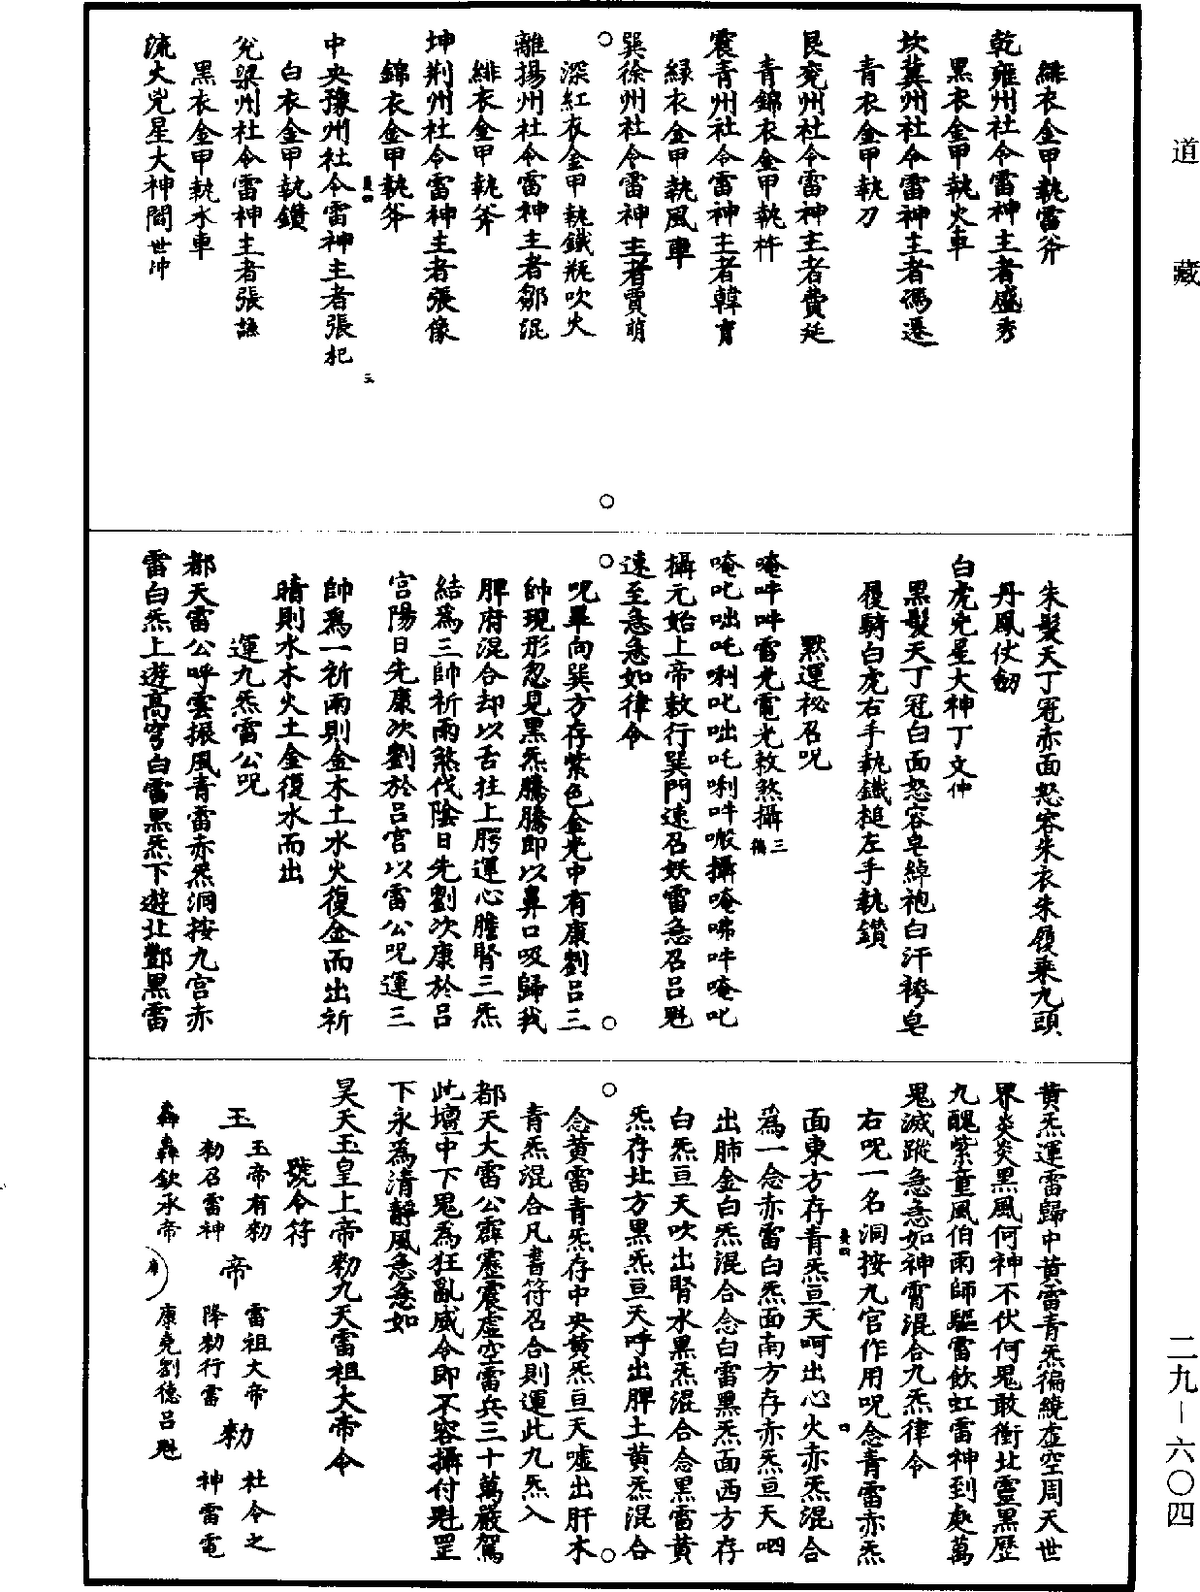 道藏
緋衣金甲執雷斧
乾雍州社令雷神主者盛秀
黑衣金甲執火車
坎冀州社令雷神主者馮遷
青衣金甲執刀
艮兗州社令雷神主者費廷
青錦衣金甲執杵
震青州社令雷神主者韓育
緑衣金甲執風車
巽徐州社令雷神主者賈萌
深紅衣金甲執鐵瓶吹火
離揚州社令雷神主者鄒混
緋衣金甲執斧
坤荆州社令雷神主者張像
錦衣金甲執斧
中央豫州社令雷神主者張杞
三
白衣金甲執鑽
兌梁州社令雷神主者張謙
黑衣金甲執水車
流大兇星大神閻世冲
朱髮天丁冠赤面怒容朱衣朱履乘九頭
丹鳳仗劒
白虎兇星大神丁文仲
黑髮天丁冠白面怒容皂綽袍白汗袴皂
履騎白虎右手執鐵槌左手執鑽
黙運祕召呪
唵吽吽雷光電光敕煞攝
唵叱咄吒唎叱咄吒唎吽㘕攝唵㘕吽唵叱
攝元始上帝敕行巽門速召妖雷急召吕魁
速至急急如律令
呪畢向巽方存紫色金光中有康劉吕三
帥現形忽見黑炁騰騰即以鼻口吸歸我
脾府混合却以舌拄上腭運心膽腎三炁
結爲三帥祈雨煞伐陰日先劉次康於吕
宫陽日先康次劉於吕宫以雷公呪運三
帥爲一祈雨則金木土水火復金而出祈
晴則水木火土金復水而出
運九炁雷公呪
都天雷公呼雲振風青雷赤炁洞按九宫赤
雷白炁上遊高穹白雷黑炁下遊北酆黑雷
黄炁運雷歸中黄雷青炁徧繞虚空周天世
界炎炎黑風何神不伏何鬼敢衝北靈黑歷
九醜紫童風伯雨師驅雷飲虹雷神到處萬
鬼滅蹤急急如神霄混合九炁律令
右呪一名洞按九宫作用呪念青雷赤炁
面東方存青炁亘天呵出心火赤炁混合
爲一念赤雷白炁面南方存赤炁亘天呬
出肺金白炁混合念白雷黑炁面西方存
白炁亘天吹出腎水黑炁混合念黑雷黄
炁存北方黑炁亘天呼出脾土黄炁混合
念黄雷青炁存中央黄炁亘天噓出肝木
青炁混合凡書符召合則運此九炁入
都天大雷公霹靂震虚空雷兵三十萬嚴駕
此壇中下鬼爲狂亂威令即不容攝付魁罡
下永爲清静風急急如
昊天玉皇上帝勑九天雷祖大帝令
號令符
玉
玉帝有勑
勑召雷神
轟轟欽承帝
帝
雷祖大帝
降勑行雷
康堯劉德吕魁
勑
社令之
神雷電
二九－六〇四